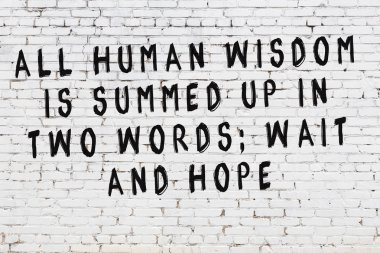 ALL HUMAN WISDOM
IS SUMMED UP IN
TWO WORDS; WAIT
AND HOPE